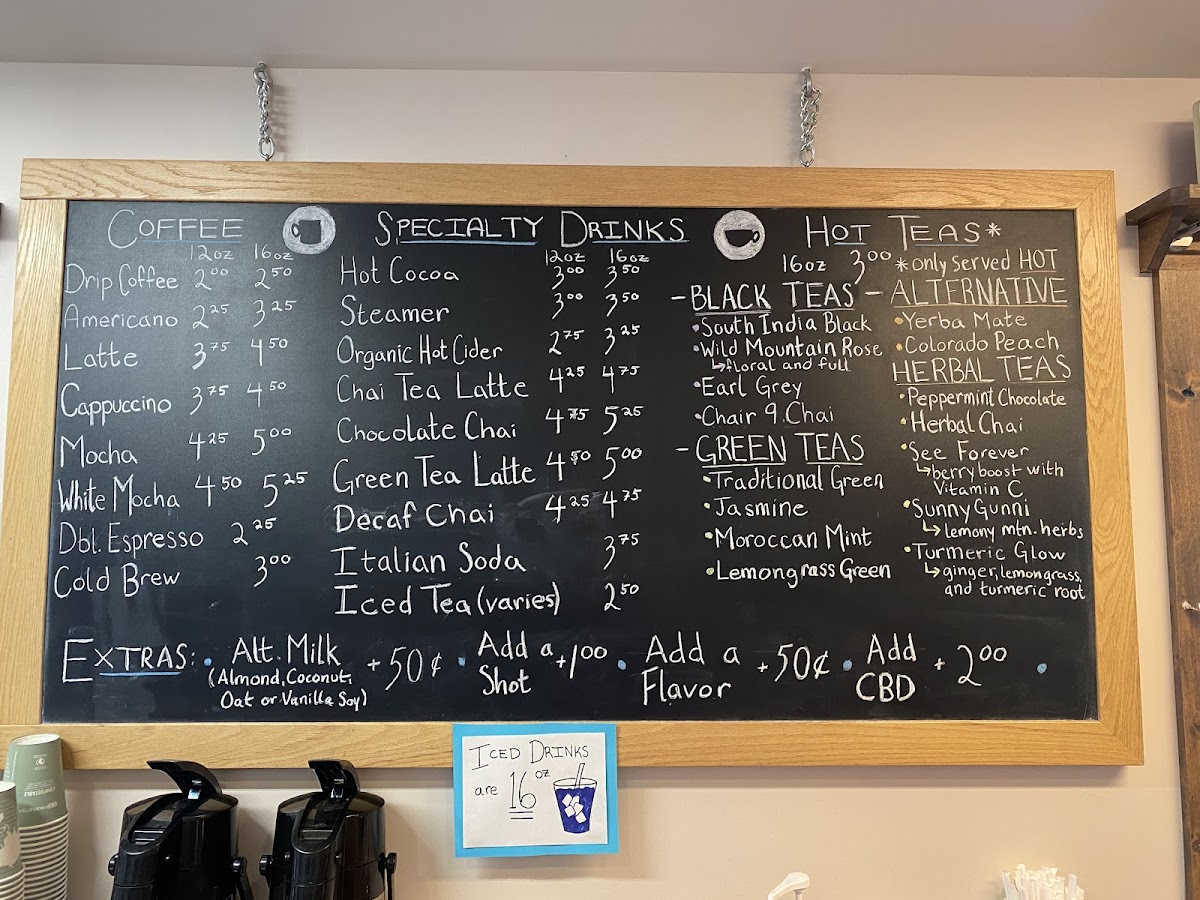 COFFEE
12oz 16oz
Drip Coffee 2⁰⁰ 2⁵⁰
Americano 2²⁵ 3²⁵
Latte 3⁷⁵ 4⁵⁰
Cappuccino 3⁷⁵ 4⁵⁰
Mocha 4²⁵ 5⁰⁰
White Mocha 4⁵⁰ 5²⁵
Dbl. Espresso 2²⁵
Cold Brew 3⁰⁰
SPECIALTY DRINKS
12oz 16oz
Hot Cocoa 3⁰⁰ 3⁵⁰
Steamer 3⁰⁰ 3⁵⁰
Organic Hot Cider 2⁷⁵ 3²⁵
Chai Tea Latte 4²⁵ 4⁷⁵
Chocolate Chai 4⁷⁵ 5²⁵
Green Tea Latte 4⁵⁰ 5⁰⁰
Decaf Chai 4²⁵ 4⁷⁵
Italian Soda 3⁷⁵
Iced Tea (varies) 2⁵⁰
HOT TEAS*
16oz 3⁰⁰ *only served HOT
- BLACK TEAS -
•South India Black
•Wild Mountain Rose
↳floral and full
•Earl Grey
•Chair 9 Chai
- GREEN TEAS
•Traditional Green
•Jasmine
•Moroccan Mint
•Lemongrass Green
ALTERNATIVE
•Yerba Mate
•Colorado Peach
HERBAL TEAS
•Peppermint Chocolate
•Herbal Chai
•See Forever
↳berry boost with
Vitamin C
•Sunny Gunni
↳lemony mtn. herbs
•Turmeric Glow
↳ginger, lemongrass,
and turmeric root
EXTRAS: • Alt. Milk +50¢ • Add a Shot +1⁰⁰ • Add a Flavor +50¢ • Add CBD +2⁰⁰ •
(Almond, Coconut,
Oat or Vanilla Soy)
ICED DRINKS
are 16 oz